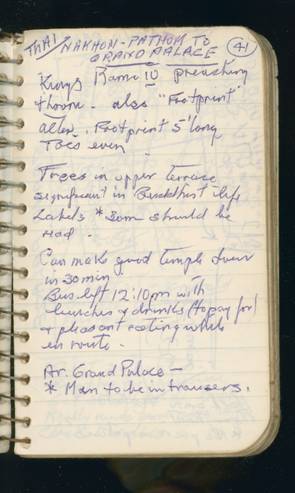 THAI NAKHON-PATHOM TO
GRAND PALACE 41
Kings Rama IV preaching
throne - also "Footprint"
. Footprint 5' long
Toes even
Trees in upper terrace
significant in Buddhist life
Labels * Some should be
read.
Can make good temple tour
in 30 min
Bus left 12:10pm with
lunches & drinks (to pay for)
& pleasant eating while
en route.
Ar. Grand Palace -
* Men to be in trousers.